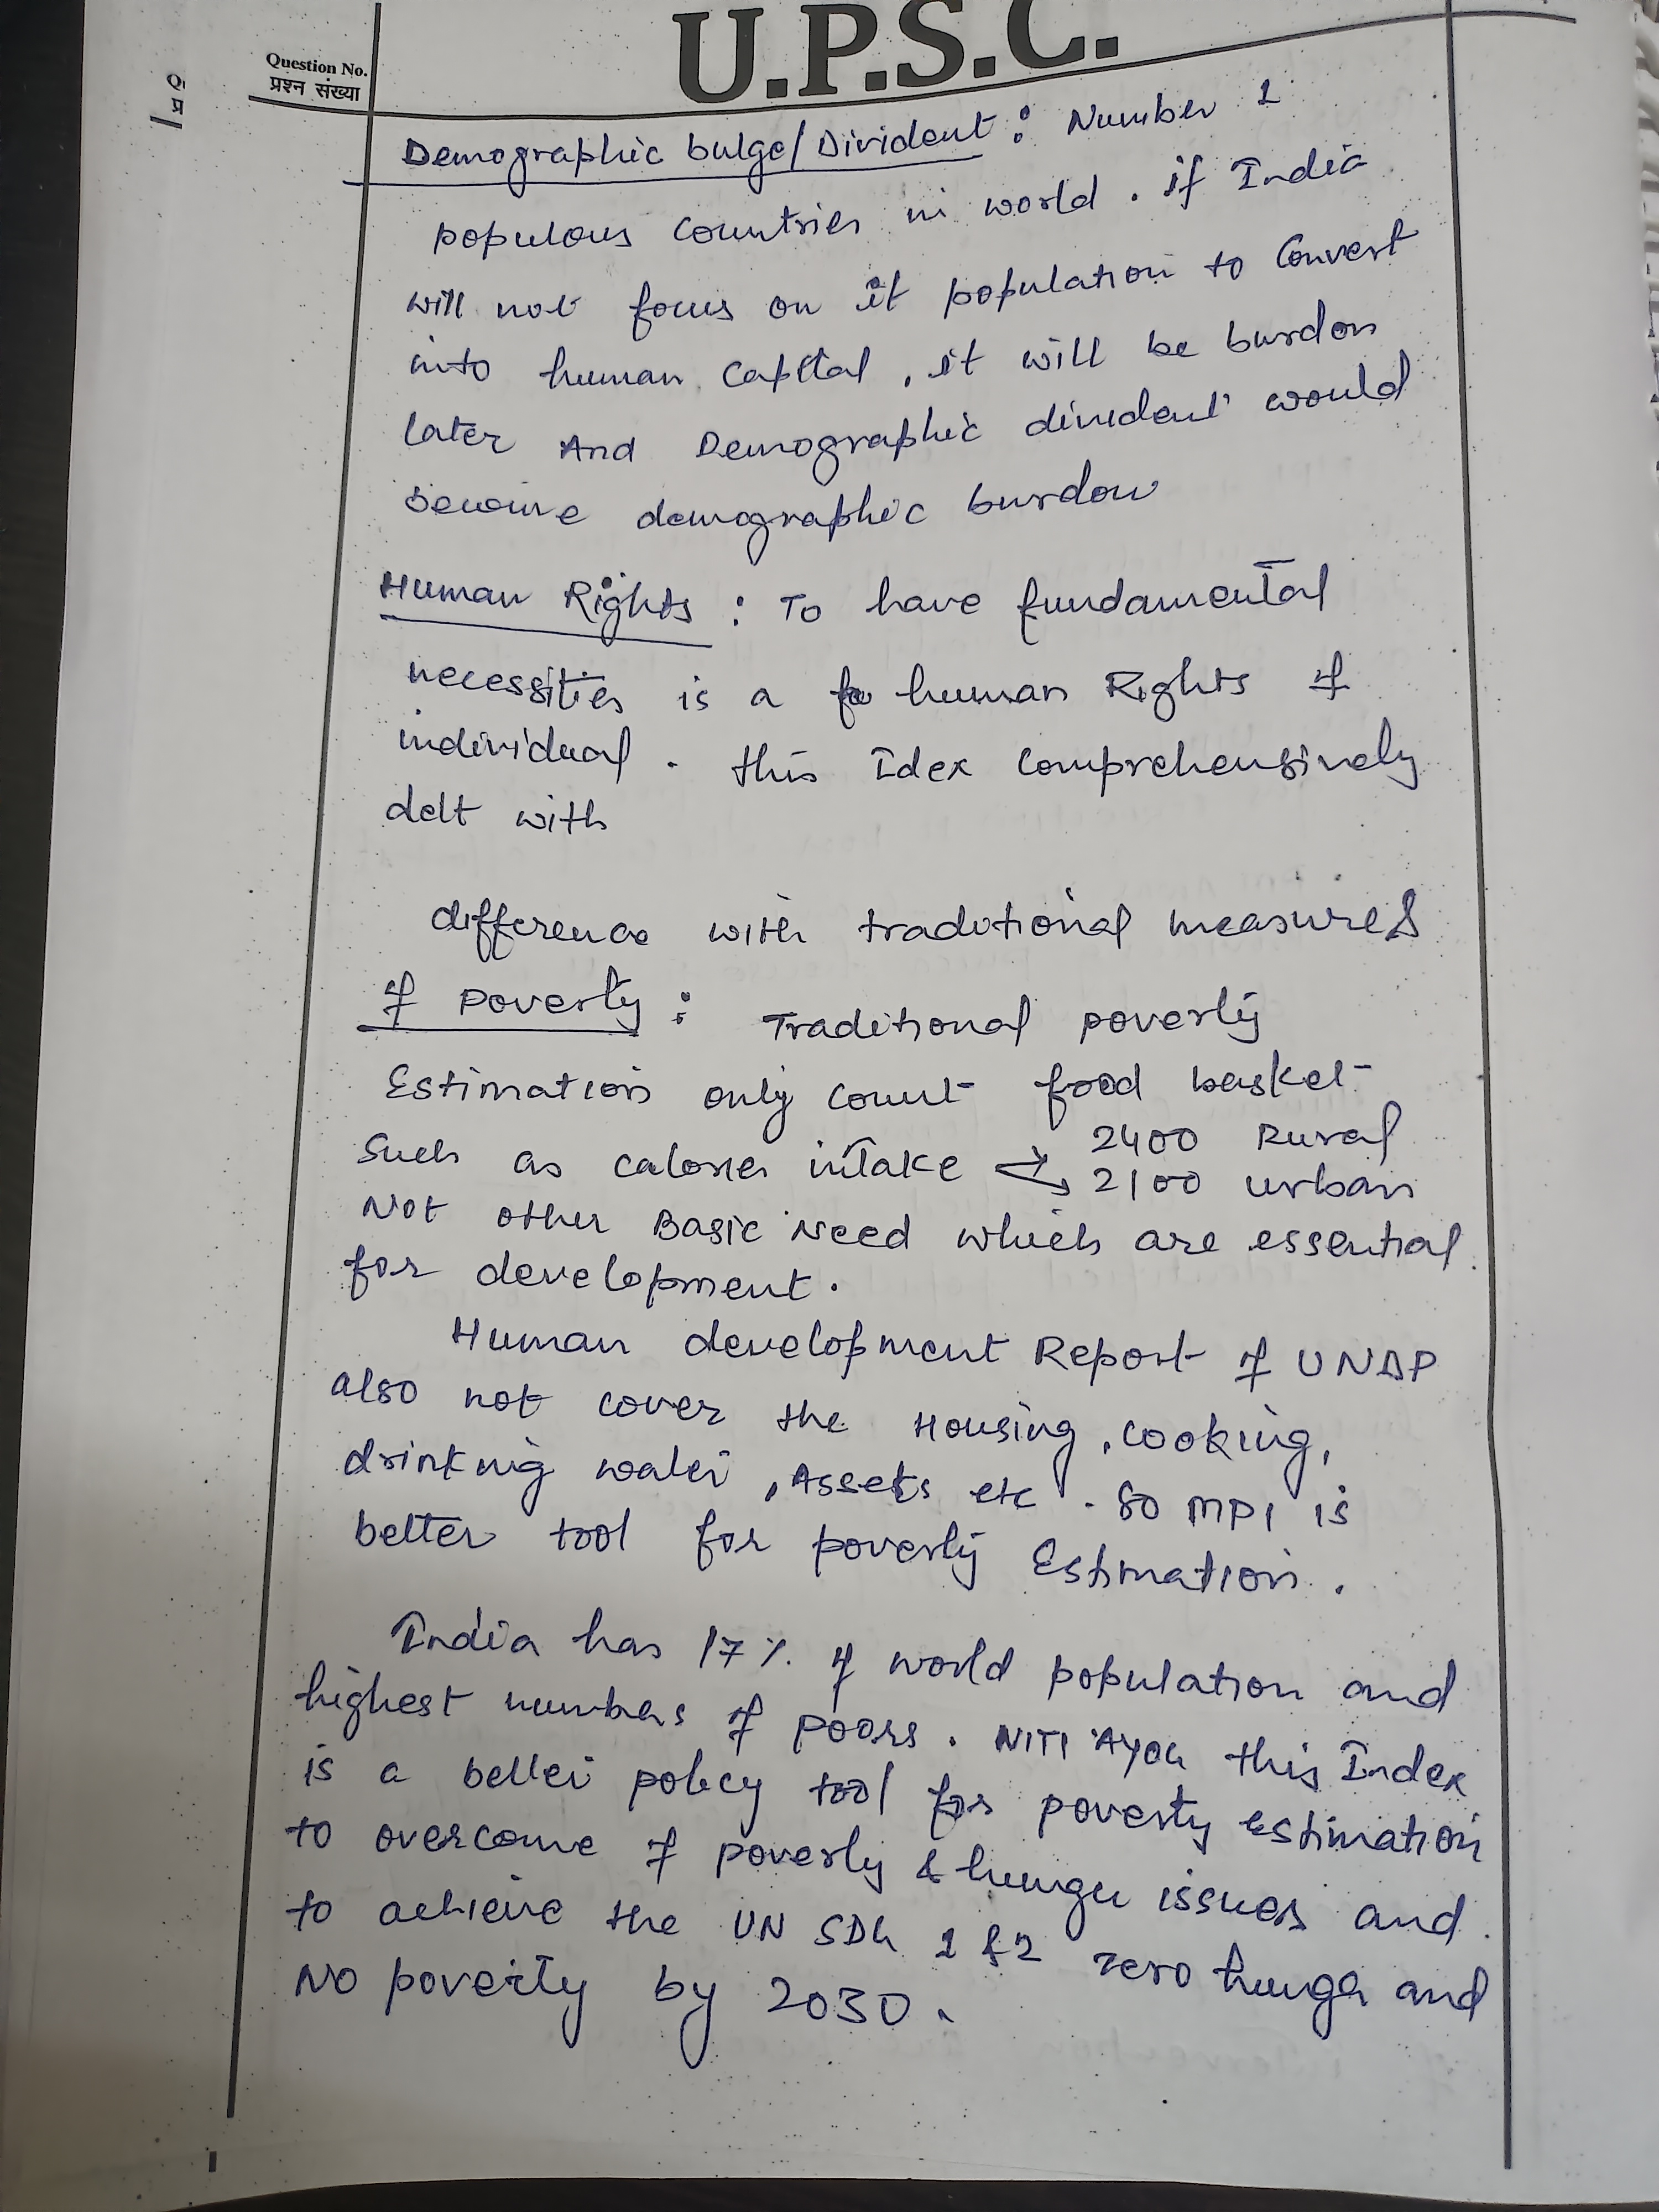 U.P.S.C.
Question No.
प्रश्न संख्या
Demographic bulge/Divident : Number 1
populous countries in world . if India
will not focus on it population to Convert
into human Capital , it will be burdon
later And Demographic divident would
become demographic burdon
Human Rights : To have fundamental
necessities is a human Rights of
individual . this Idex comprehensively
delt with
difference with traditional measures
of poverty : Traditional poverty
Estimation only count food basket
Such as calories intake → 2400 Rural
→ 2100 urban
Not other Basic Need which are essential
for development.
Human development Report of UNDP
also not cover the Housing, cooking,
drinking water, Assets etc . So MPI is
better tool for poverty Estimation .
India has 17% of world population and
highest numbers of poors . NITI AYOG this Index
is a better policy tool for poverty estimation
to overcome of poverty & hunger issues and
to achieve the UN SDG 1 & 2 zero hunger and
No poverty by 2030 .